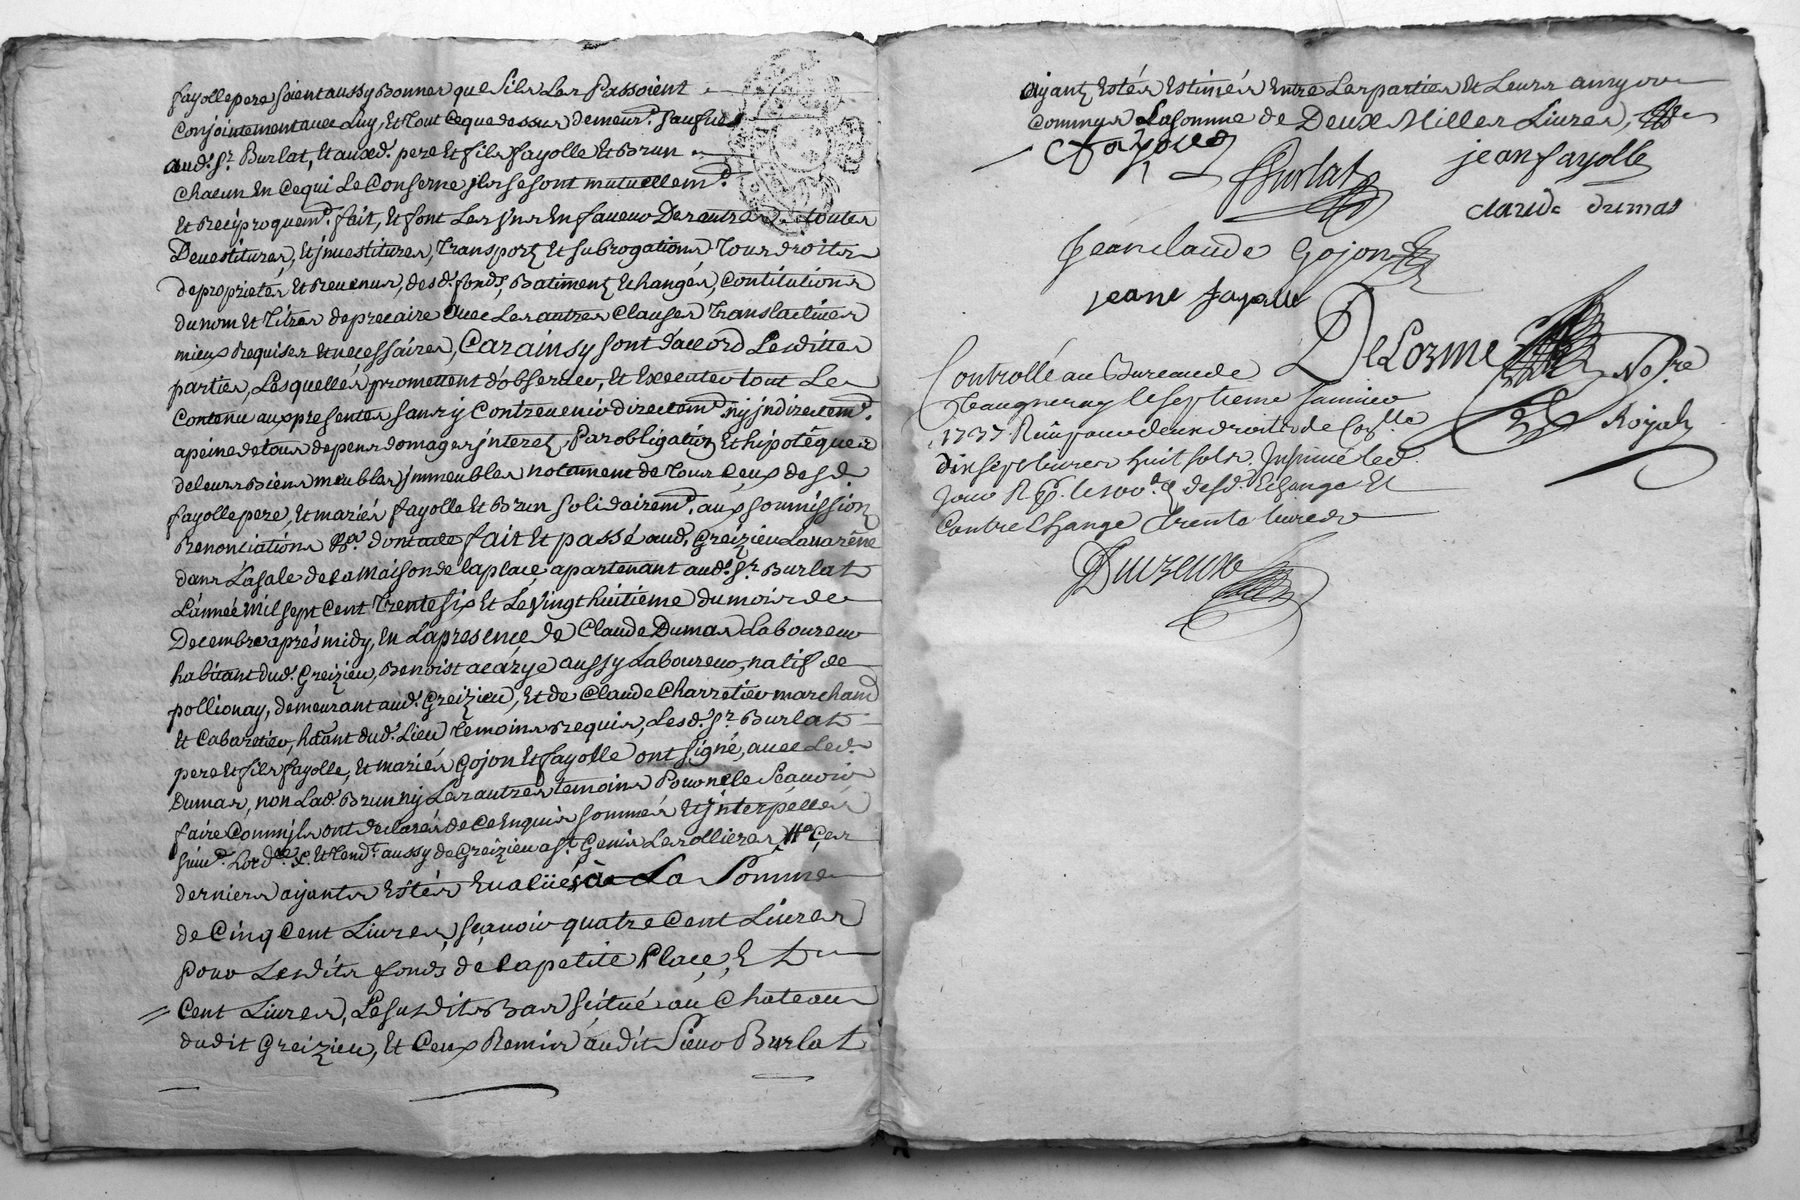 fayolle pere soient aussy bonnes que sils Les Passoient
Conjointement avec Luy, Et Tout Ce que dessus demeur.t sauf
aud.t S.r Burlat, Et auxd. pere Et fils fayolle Et Brun
Chacun En Ce qui Le Conserne jls se sont mutuellem.t
Et Reciproquem.t fait, Et font Les Uns En faveur Des autres toutes
Devestitures, Et jnvestitures, Transports Et subrogations, Tous droits
de proprietés Et Revenus, desd. fonds, Batiments Echangés, Contitutions
du nom Et Titres de precaire avec Les autres Clauses Translatives
mieux Requises Et necessaires, Car ainsy sont d'accord Lesdittes
parties, Lesquelles promettent d'observer, Et Executer tout Le
Contenu aux presentes sans y Contrevenir directem.t ny jndirectem.t
a peine de tous depens domages jnterets, Par obligation Et hipotéques
de leurs Biens meubles jmmeubles notament de Tous Ceux desd.
fayolle pere, Et mariés fayolle Et Brun solidairem.t aux soumissions
Renonciations &a. dont acte fait Et passé aud. Greizieu Lavarenne
dans La sale de La Maison de la place apartenant aud. S.r Burlat
L'année Mil sept Cent Trente six Et Le Vingt huitième du mois de
Decembre après midy, En La presence de Claude Dumas Laboureur
habitant dud. Greizieu, Benoist acarye aussy Laboureur, natif de
pollionay, demeurant aud. Greizieu, Et de Claude Charretier marchand
Et Cabaretier, hâant dud. Lieu Temoins Requis, Lesd. S.r Burlat
pere Et fils fayolle, Et mariés Gojon Et fayolle ont signé, avec Led.
Dumas, non Lad. Brun ny Les autres temoins Pour ne Le Scavoir
faire Comm'ils ont declarés de Ce Enquis sommés Et jnterpellés
aussy de Greizieu a S.t Genis Les ollieres Ces
derniers ayants Estés Evalüés à La Somme
de Cinq Cent Livres, sçavoir quatre Cent Livres
pour Lesdits fonds de la petite Place, Et
Cent Livres, Le susdit Bas scitué au Chateau
dudit Greizieu, Et Ceux Remis audit Sieur Burlat
ayant Estés Estimés Entre Les parties Et Leurs amys
Communs La somme de Deux Milles Livres,
C fayolle
Burlat
jean fayolle
claude dumas
Jean claude Gojon
jeane fayolle
DeLorme No.re Royal
Controllé au Bureau de
Vaugneray le septieme janvier
1737 Reçu pour deux droits de Con.lle
dix sept livres huit sols. Insinué led.
jour R desd. Echange Et
Contre Echange Trente livres